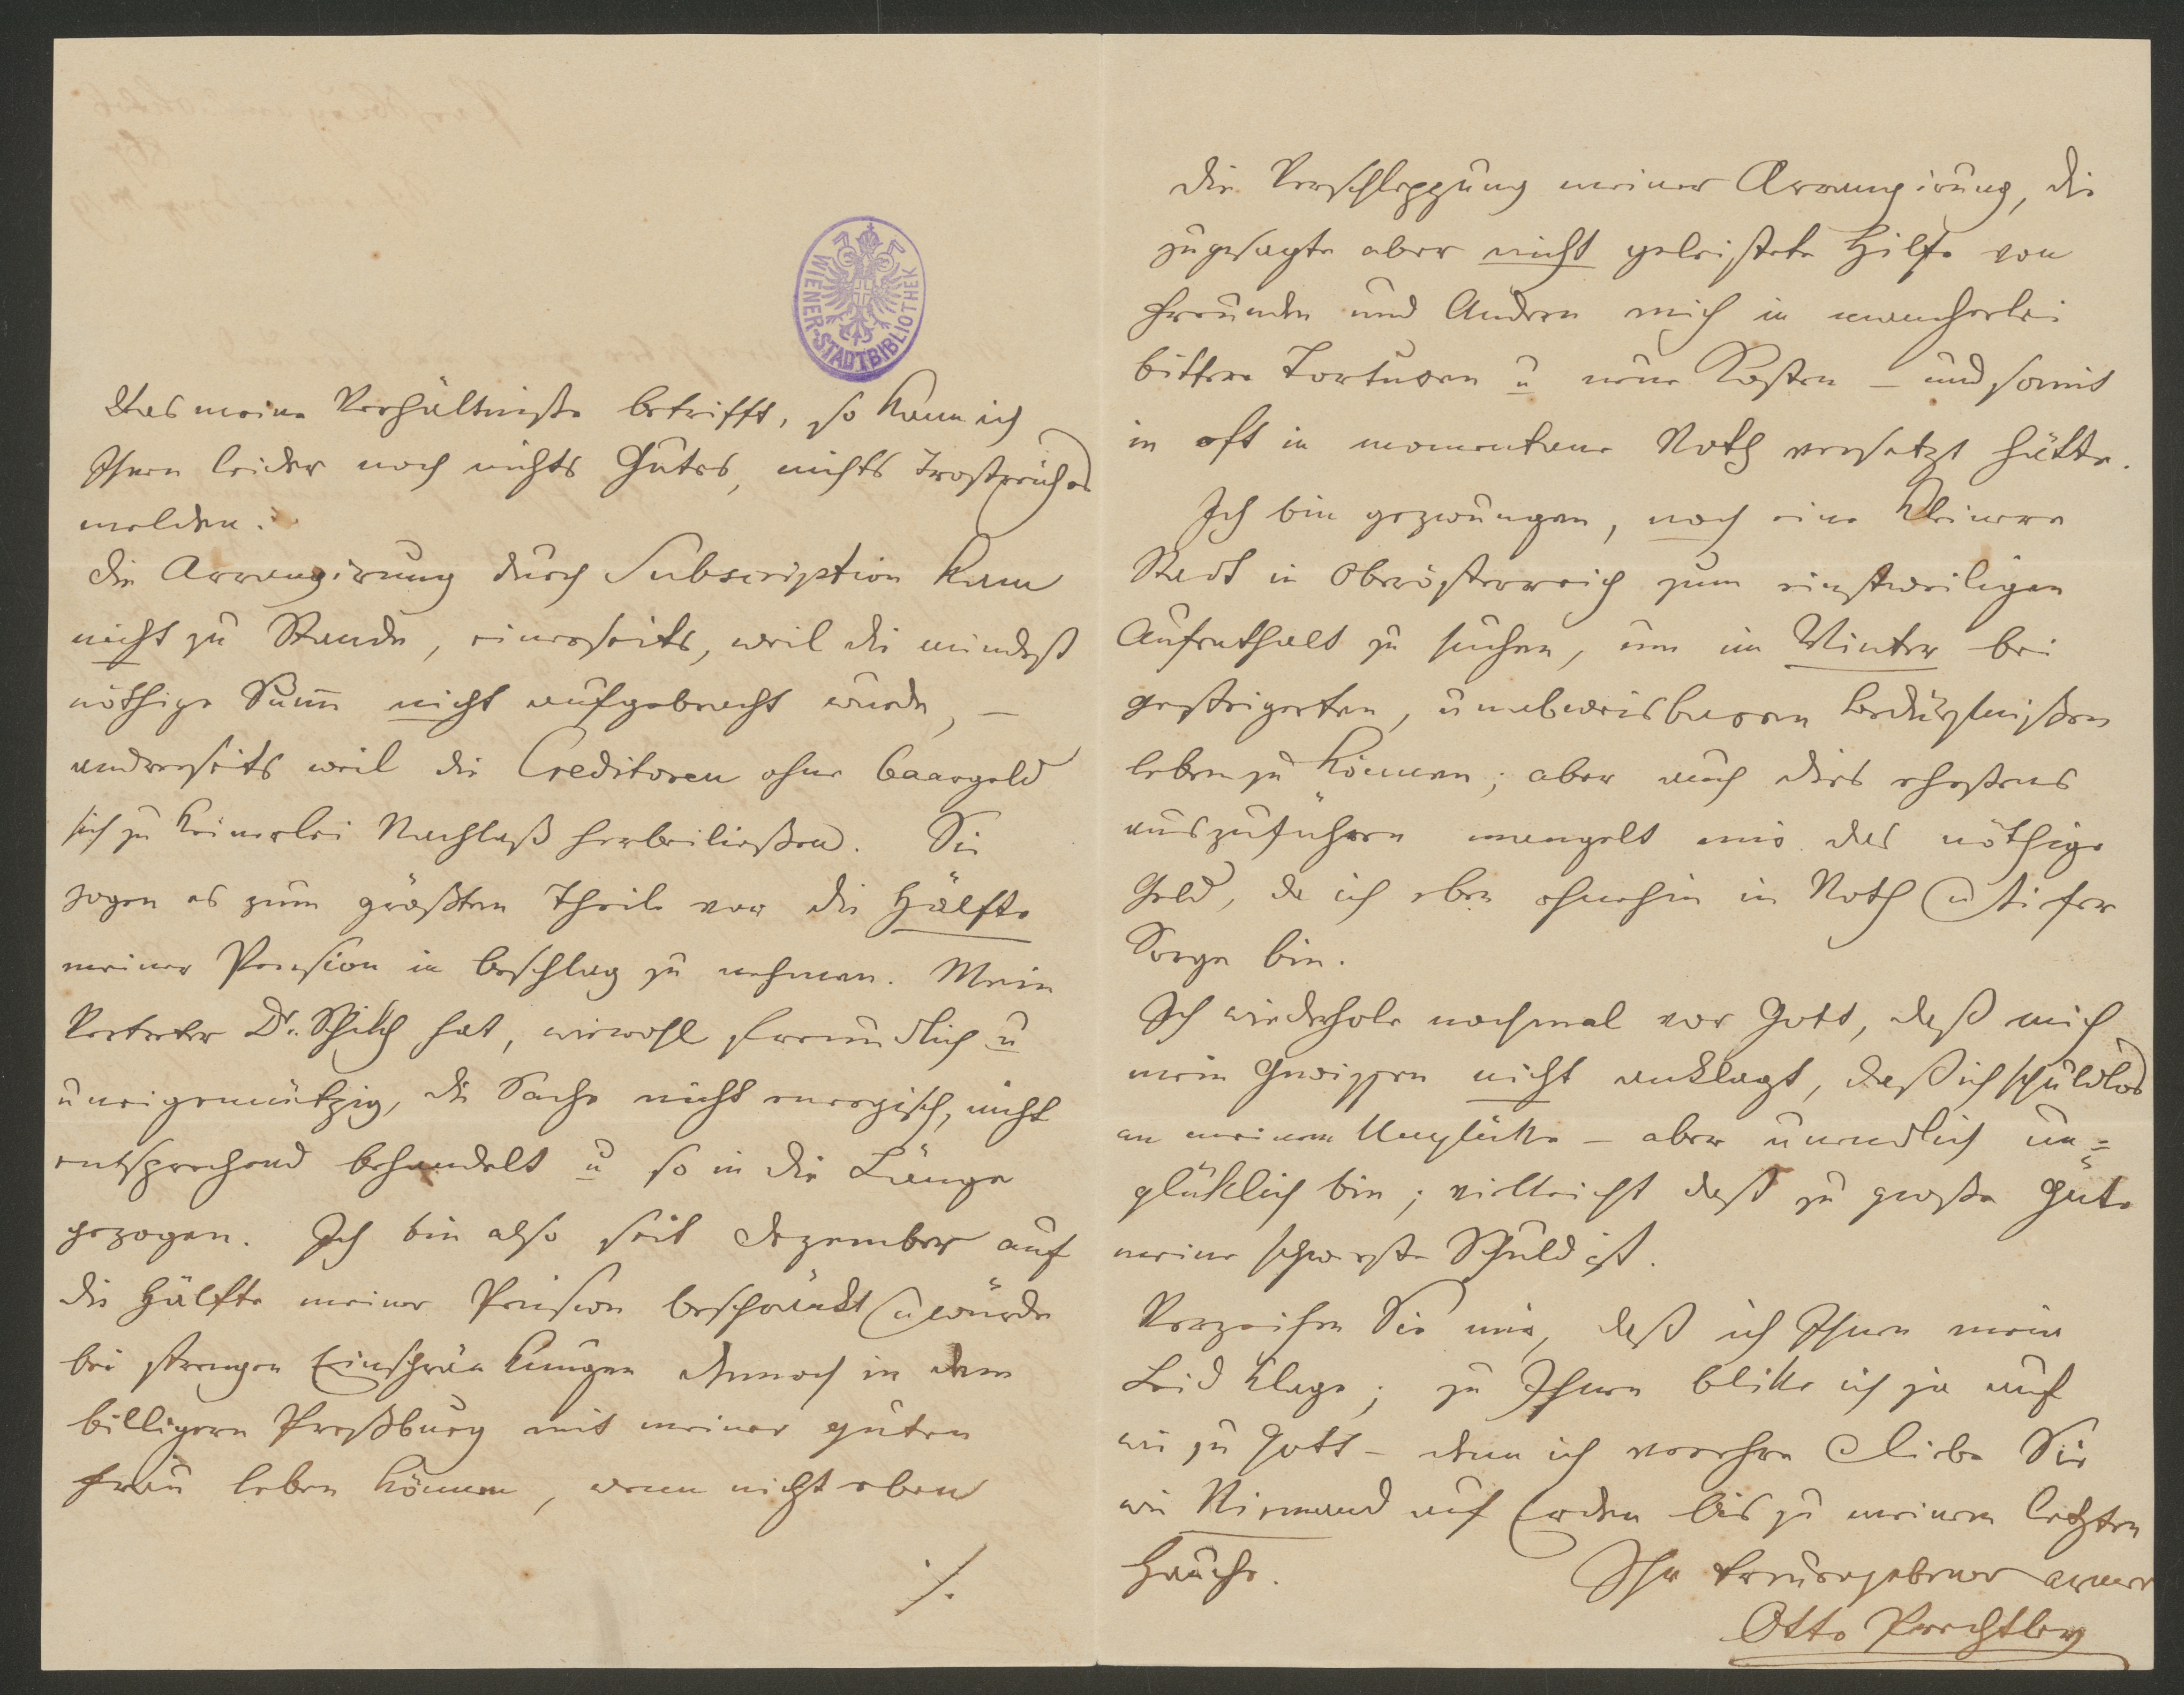 WIENER-STADTBIBLIOTHEK
Was meine Verhältnisse betrifft, so kann ich
Ihnen leider noch nichts Gutes, nichts Trostreiches
melden.
Die Arrangirung durch Subscription kam
nicht zu Stande, einerseits, weil die mindest
nöthige Sum̅ nicht aufgebracht wurde, –
andrerseits weil die Creditoren ohne Baargeld
sich zu keinerlei Nachlaß herbeiließen. Sie
zogen es zum größten Theile vor die Hälfte
meiner Pension in Beschlag zu nehmen. Mein
Vertreter Dr. hat, wiewohl freundlich u
uneigennützig, die Sache nicht energisch, nicht
entsprechend behandelt u so in die Länge
gezogen. Ich bin also seit Dezember auf
die Hälfte meiner Pension beschränkt u würde
bei strengen Einschränkungen dennoch in dem
billigern Preßburg mit meiner guten
Frau leben können, wenn nicht eben
./.
die Verschleppung meiner Arrangirung, die
zugesagte aber nicht geleistete Hilfe von
Freunden und Andern mich in mancherlei
bittere Torturen u neue Kosten – und somit
in oft in momentane Noth versetzt hätte.
Ich bin gezwungen, noch eine kleinere
Stadt in Oberösterreich zum einstweiligen
Aufenthalt zu suchen, um im Winter bei
gesteigerten, unabweisbaren Bedürfnißen
leben zu können; aber auch dies ehestens
auszuführen mangelt mir das nöthige
Geld, da ich eben ohnehin in Noth u tiefer
Sorge bin.
Ich wiederhole nochmal vor Gott, daß mich
mein Gewissen nicht anklagt, daß ich schuldlos
an meinem Unglücke – aber unendlich un=
glüklich bin; vielleicht daß zu große Güte
meine schwerste Schuld ist.
Verzeihen Sie mir, daß ich Ihnen mein
Leid klage; zu Ihnen blike ich ja auf
wie zu Gott – denn ich verehre u liebe Sie
wie Niemand auf Erden bis zu meinem letzten
Hauche. Ihr treuergebener armer
Otto Prechtler